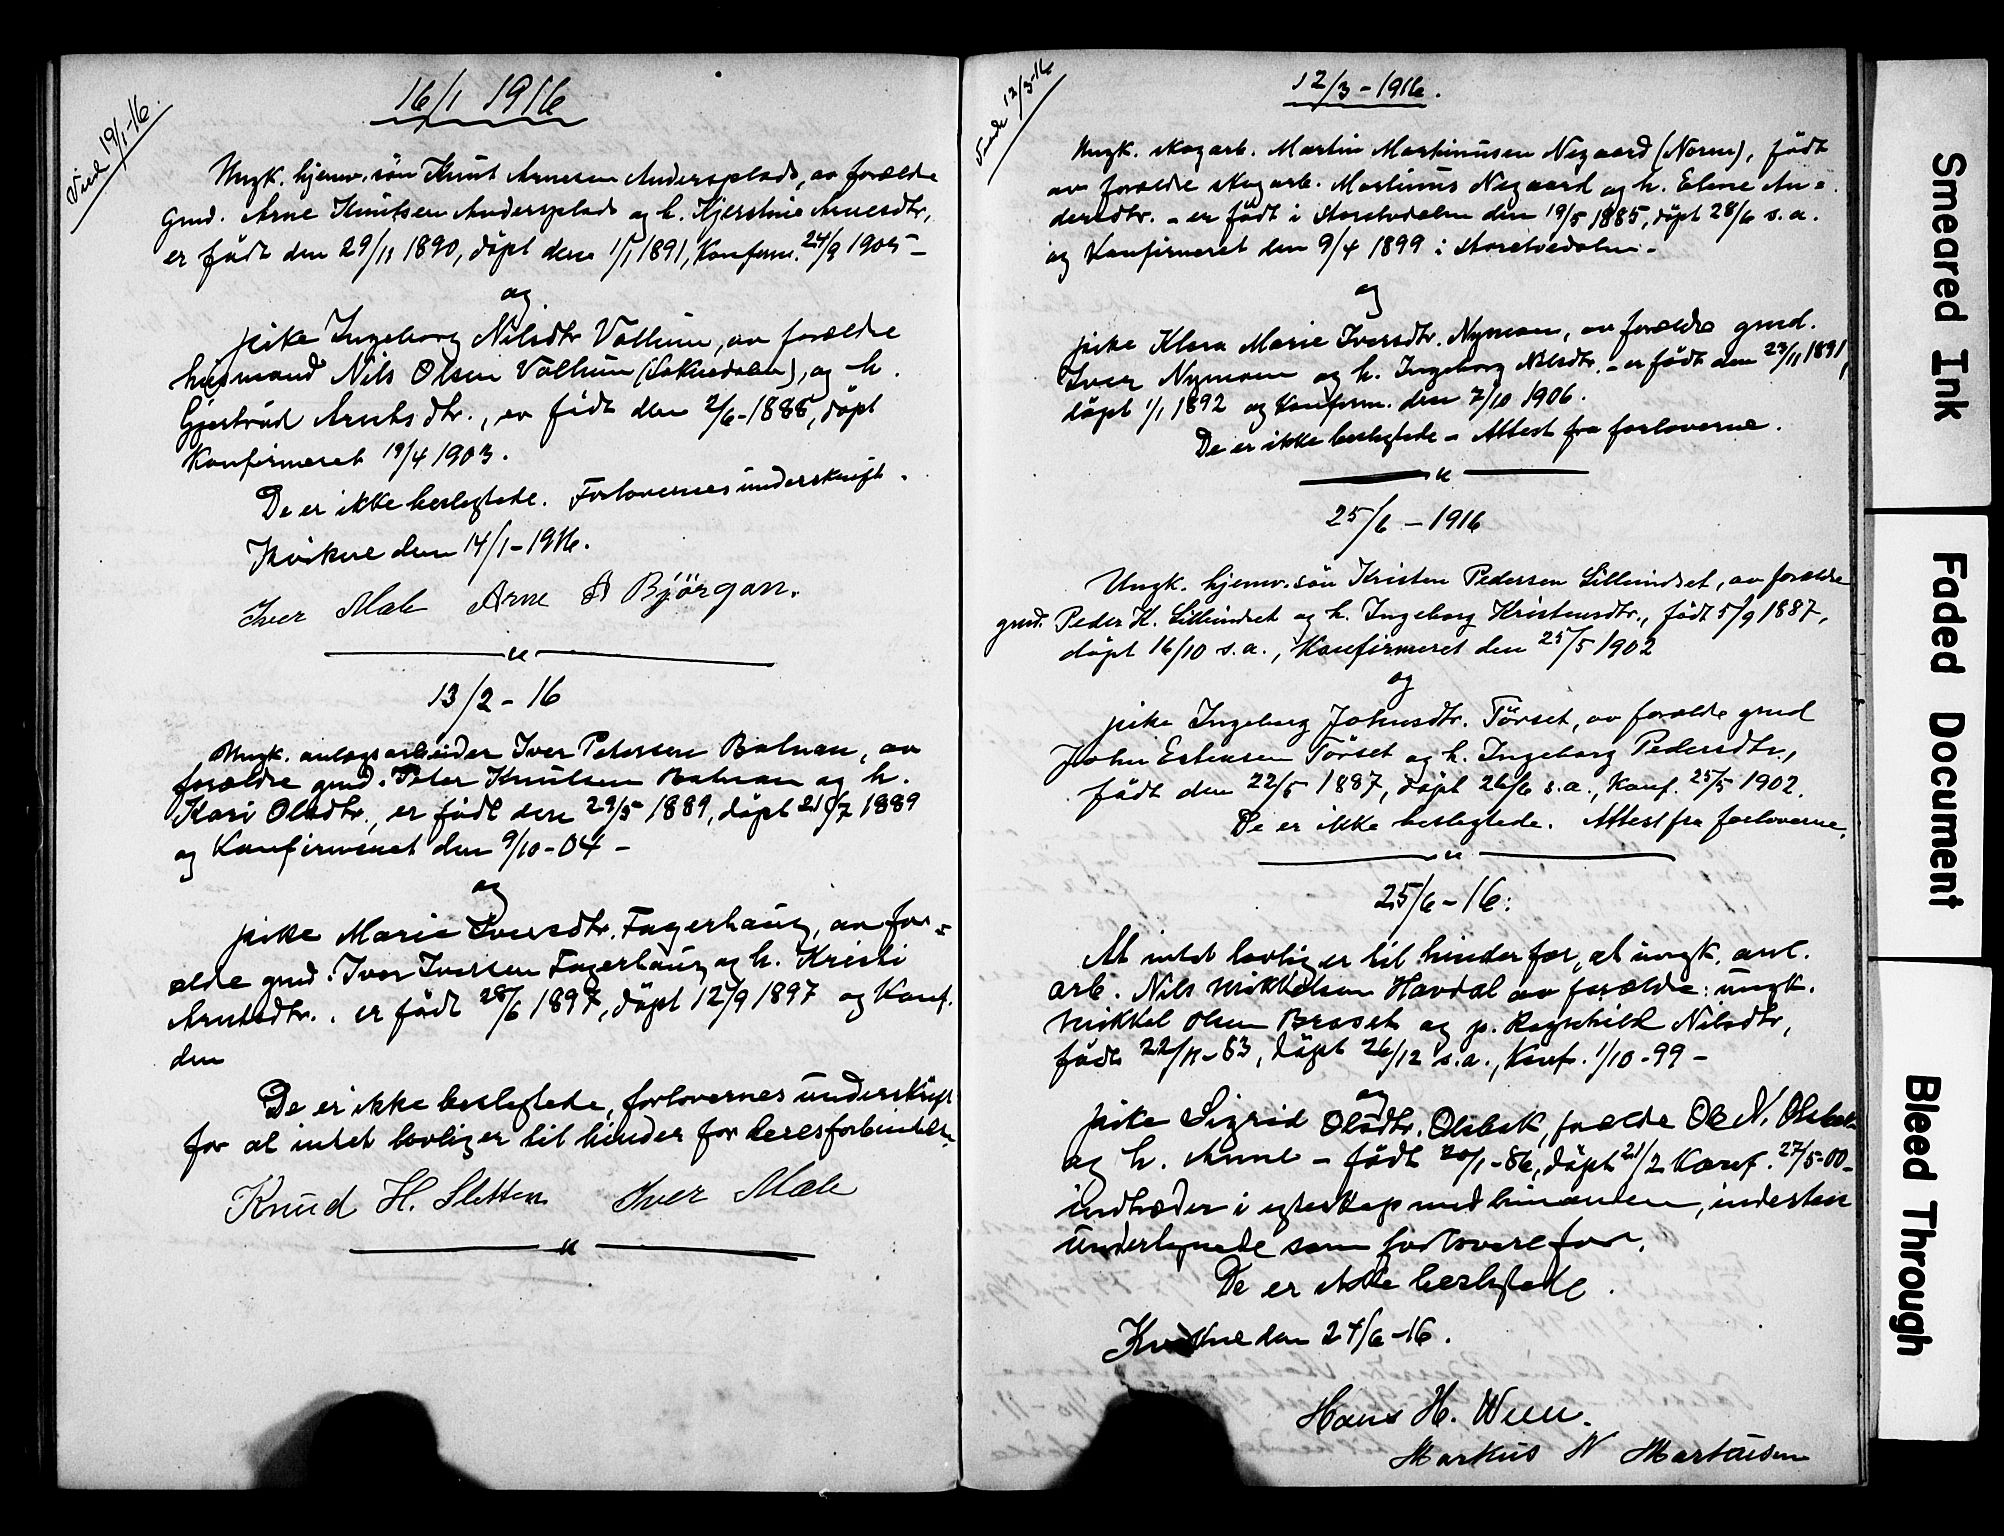 Viet 19/1-16.
16/1 1916
Ungk. hjemv. søn Knut Arnesen Andersplads, av forældre
Gmd. Arne Knutsen Andersplads og h. Kjerstine Arnesdtr,
er født den 29/11 1890, døpt den 1/1 1891, Konferm. 24/9 1905 –
og
pike Ingeborg Nilsdtr Vollum, av forældre
husmand Nils Olsen Vollum (Soknedalen), og h.
Gjertrud Arntsdtr., er født den 2/6-1888, døpt
Konfirmeret 19/4 1903.
De er ikke beslegtede. Forlovernes underskrift.
Kvikne den 14/1-1916.
Iver Mæle Arne A Bjørgan.
"
13/2 - 16
Ungk. anlægsarbeider Iver Petersen Bolman, av
forældre gmd. Peter Knutsen Bolman og h.
Kari Olsdtr., er født den 29/5 1889, døpt 21/7 1889
og Konfirmeret den 9/10-04 –
og
pike Marie Iversdtr. Fagerhaug, av for=
ældre gmd. Iver Iversen Fagerhaug og h. Kristi
Arntsdtr. . er født 28/6 1897, døpt 12/9 1897 og Konf.
den
De er ikke beslegtede, forlovernes underskrift
for at intet lovlig er til hinder for deres forbindelse.
Knud H. Sletten Iver Mæle
"
Viet 12/3-16
12/3 - 1916.
Ungk. skogarb. Martin Martinusen Negaard (Noren), født
av forældre skogarb. Martinus Negaard og h. Elene An=
dersdtr. - er født i Storelvdalen den 19/5 1885, døpt 28/6 s.a.
og Konfirmeret den 9/4 1899 i Storelvedalen.-
og
pike Klara Marie Iversdtr. Nymoen, av forældre gmd.
Iver Nymoen og h. Ingeborg Nilsdtr. - er født den 23/11 1891,
døpt 1/1 1892 og Konferm. den 7/10 1906.
De er ikke beslegtede - Attest fra forloverne.
"
25/6 - 1916
Ungk. hjemv. søn Kristen Pedersen Lilleindset, av forældre
gmd. Peder K. Lilleindset og h. Ingeborg Kristensdtr., født 5/9 1887,
døpt 16/10 s.a., Konfirmeret den 25/5 1902
og
pike Ingeborg Johnsdtr. Tørset, av forældre gmd
John Estensen Tørset og h. Ingeborg Pedersdtr.,
født den 22/5 1887, døpt 26/6 s.a., Konf. 25/5 1902.
De er ikke beslegtede. Attest fra forloverne.
"
25/6 - 16:
At intet lovlig er til hinder for, at ungk. anl.
arb. Nils Mikkelsen Havdal av forældre: ungk.
Mikkel Olsen Breset og p. Ragnhild Nilsdtr,
født 22/11-83, døpt 26/12 s.a., Konf. 1/10-99 –
og
pike Sigrid Olsdtr. Olsbak, forældre Ole N. Olsbak
og h. Anne – født 20/1-86, døpt 21/2 Konf. 27/5-00 –
indtræder i egteskap med hinanden, indestaar
undertegnede som forlovere for.
De er ikke beslegtede.
Kvikne den 24/6-16.
Hans H. Wien.
Markus N Martinsen
Smeared Ink
Faded Document
Bleed Through